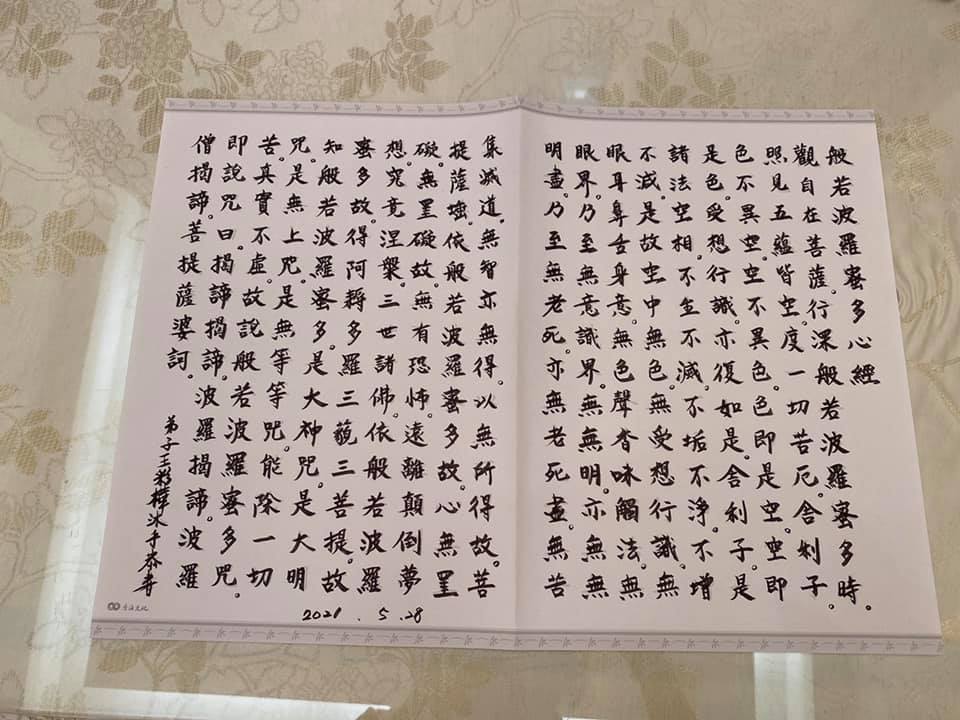 般若波羅蜜多心經
觀自在菩薩。行深般若波羅蜜多時。
照見五蘊皆空。度一切苦厄。舍利子。
色不異空。空不異色。色即是空。空即
是色。受想行識。亦復如是。舍利子。是
諸法空相。不生不滅。不垢不淨。不增
不減。是故空中。無色。無受想行識。無
眼耳鼻舌身意。無色聲香味觸法。無
眼界。乃至無意識界。無無明。亦無無
明盡。乃至無老死。亦無老死盡。無苦
集滅道。無智亦無得。以無所得故。菩
提薩埵。依般若波羅蜜多故。心無罣
礙。無罣礙故。無有恐怖。遠離顛倒夢
想。究竟涅槃。三世諸佛。依般若波羅
蜜多故。得阿耨多羅三藐三菩提。故
知般若波羅蜜多。是大神咒。是大明
咒。是無上咒。是無等等咒。能除一切
苦。真實不虛。故說般若波羅蜜多咒。
即說咒曰。揭諦揭諦。波羅揭諦。波羅
僧揭諦。菩提薩婆訶。
弟子王彩樺沐手恭書
2021.5.28